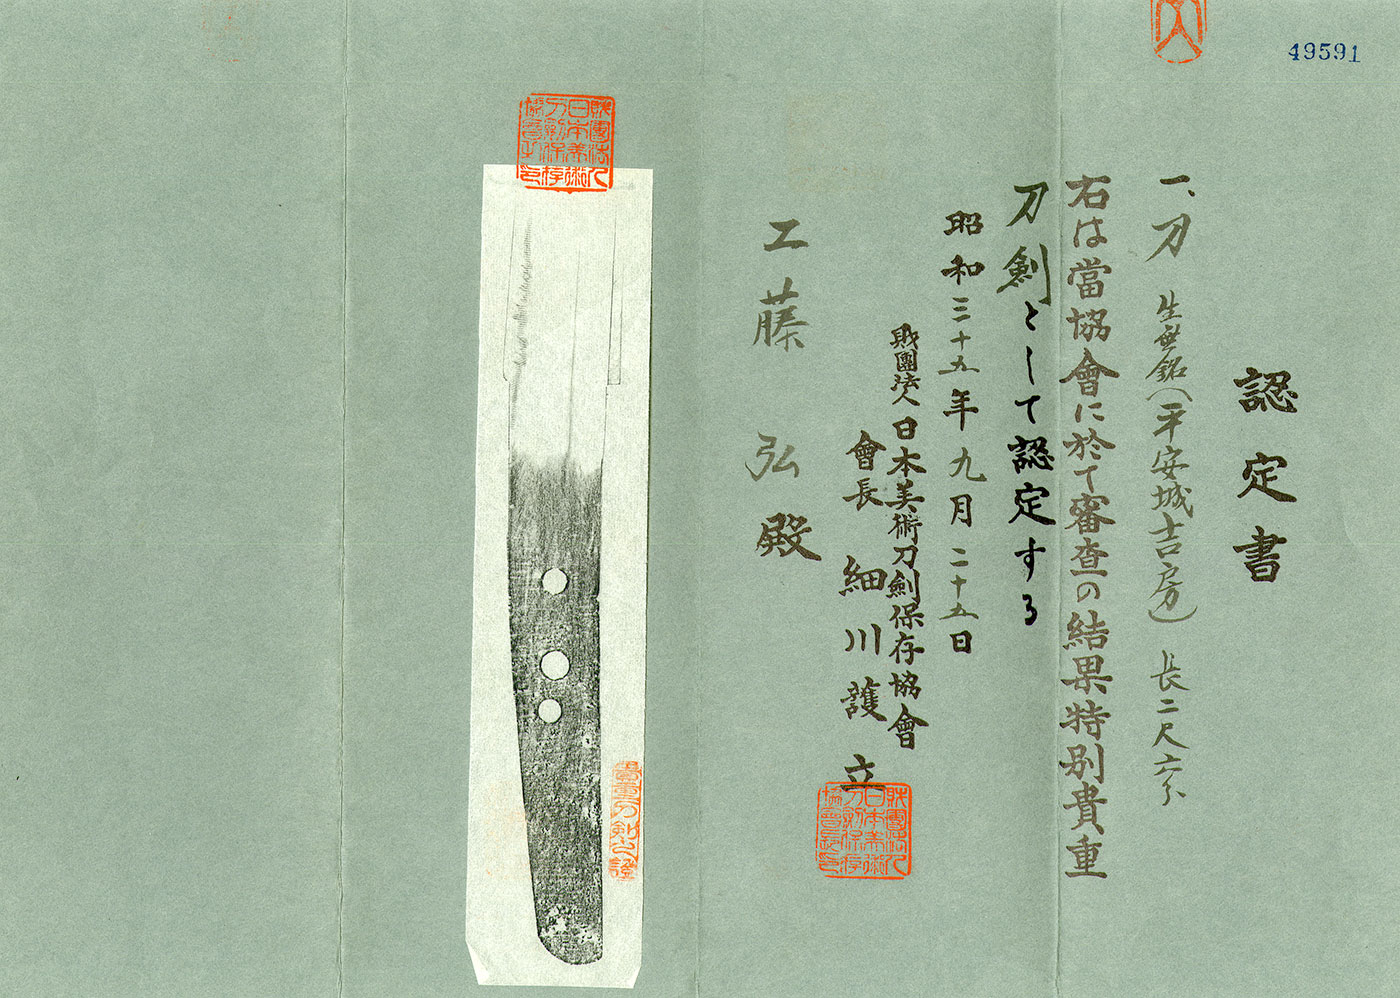 49591
認定書
一、刀 生無銘(平安城吉房) 長二尺六分
右は當協會に於て審査の結果特別貴重
刀劍として認定する
昭和三十九年九月二十五日
財團法人日本美術刀劍保存協會
會長 細川護立
工藤弘殿
財團法人日本美術刀劍保存協會
貴重刀劍之證